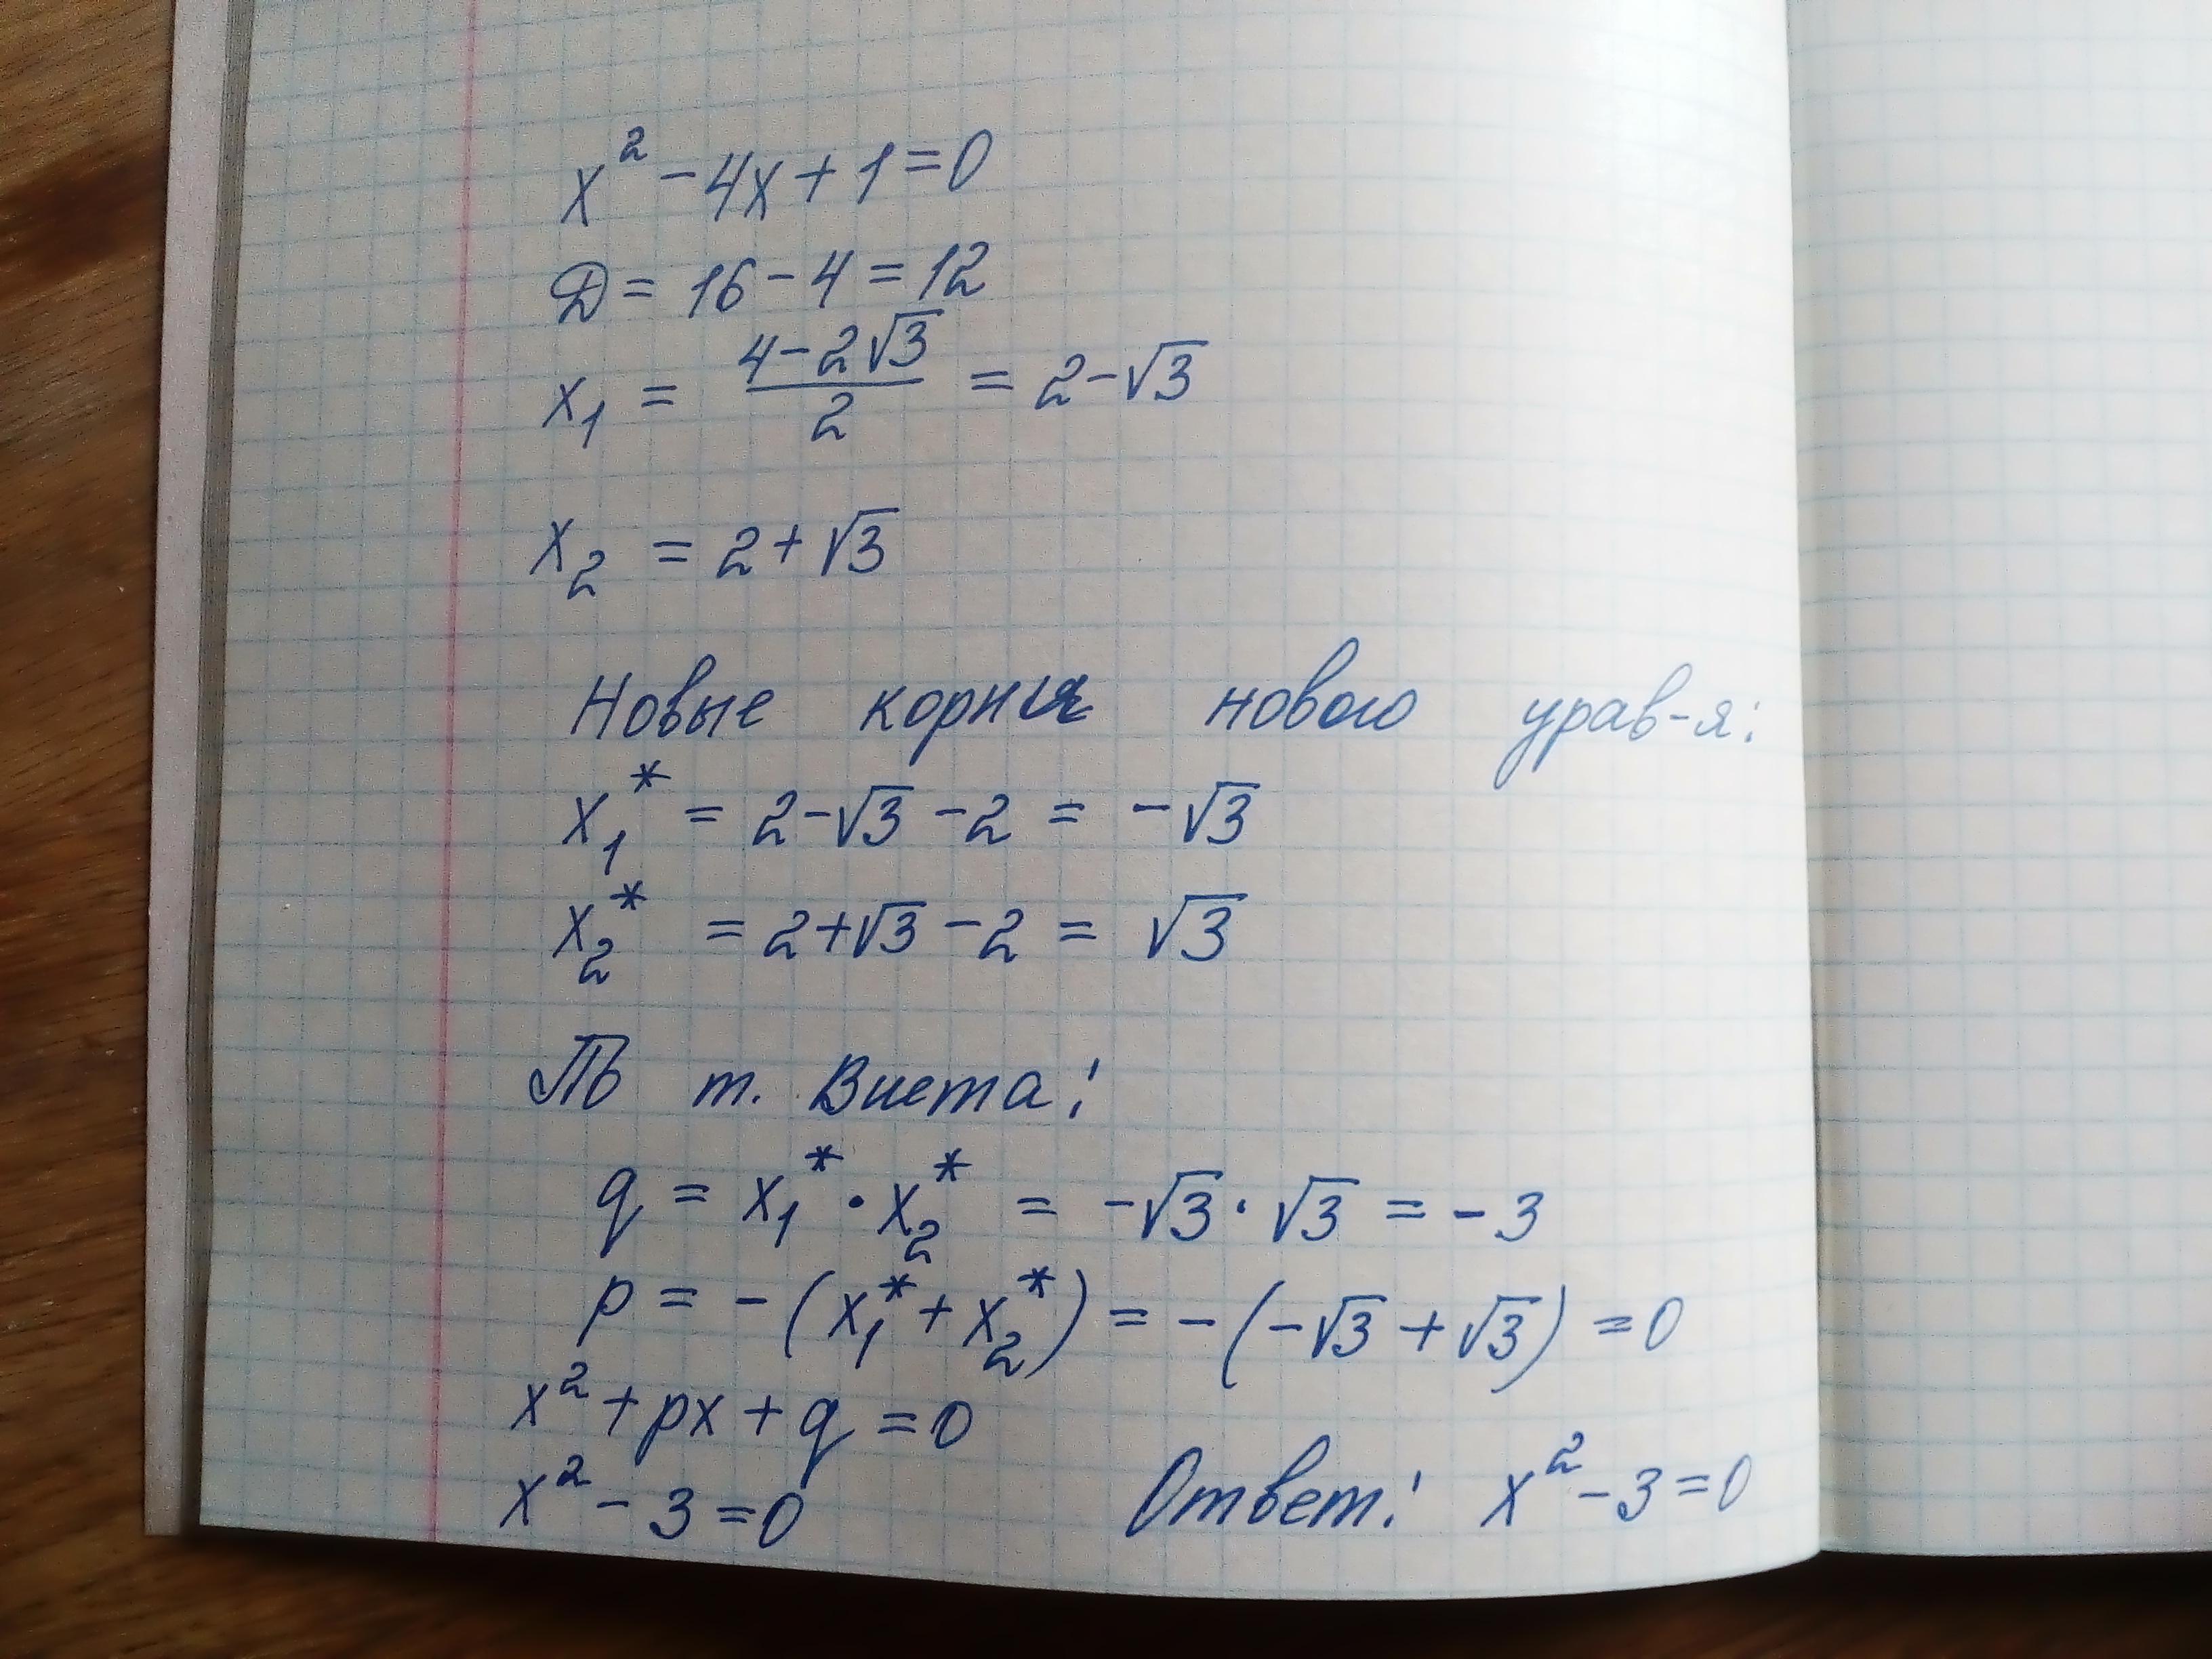 x² - 4x + 1 = 0
D = 16 - 4 = 12
x₁ = (4 - 2√3)/2 = 2 - √3
x₂ = 2 + √3
Новые корни нового урав-я:
x₁* = 2 - √3 - 2 = -√3
x₂* = 2 + √3 - 2 = √3
По т. Виета:
q = x₁* · x₂* = -√3 · √3 = -3
p = -(x₁* + x₂*) = -(-√3 + √3) = 0
x² + px + q = 0
x² - 3 = 0
Ответ: x² - 3 = 0